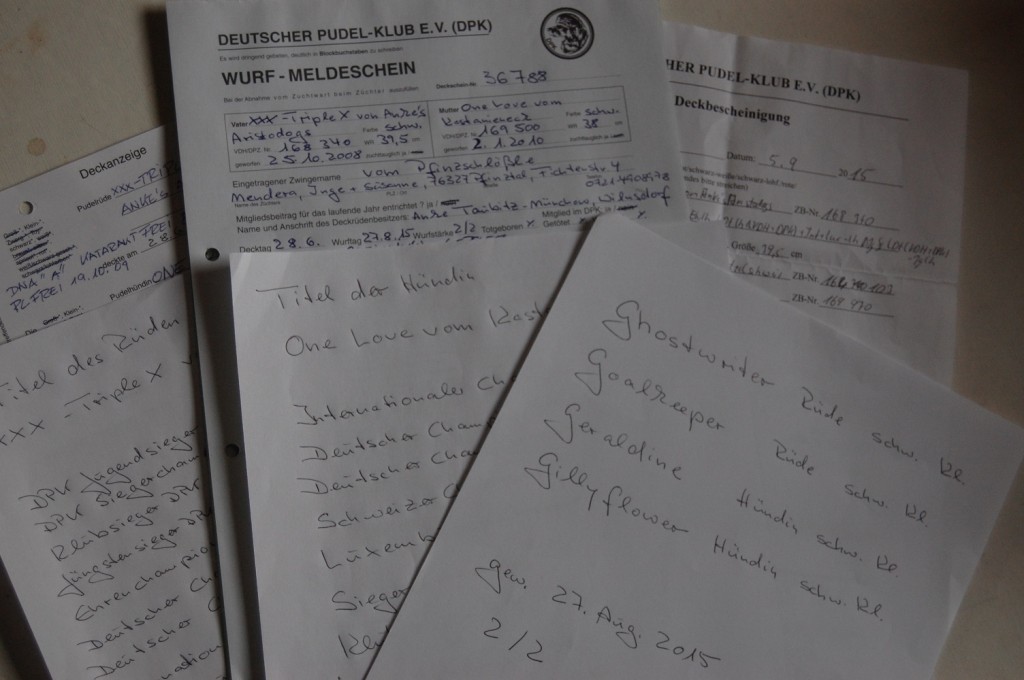 DEUTSCHER PUDEL-KLUB E.V. (DPK)
Es wird dringend gebeten, deutlich in Blockbuchstaben zu schreiben
WURF - MELDESCHEIN
Bei der Abnahme vom Zuchtwart beim Züchter auszufüllen
Deckschein-Nr. 36788
Vater XXX-Triple X von Anke's
Aristodogs Farbe schw.
VDH/DPZ. Nr. 168 340 WR 39,5 cm
geworfen 25.10.2008
Mutter One Love vom
Kastanieneck Farbe schw.
VDH/DPZ. Nr. 169 500 WR 38 cm
geworfen 2.1.2010
Eingetragener Zwingername vom Pfinzschlößle
Mendera, Inge + Susanne, 76327 Pfinztal,
Mitgliedsbeitrag für das laufende Jahr entrichtet ? ja
Name und Anschrift des Deckrüdenbesitzers: Anke Taubitz-München,
Mitglied im DPK ja
Decktag 28.6. Wurftag 27.8.15 Wurfstärke 2/2 Totgeboren
HER PUDEL-KLUB E.V. (DPK)
Deckbescheinigung
Datum: 5.9 2015
ZB-Nr. 168 340
Größe: 39,5 cm
ZB-Nr.
ZB-Nr.
Deckanzeige
Pudelrüde XXX-TRIP
ANKE'S
DNA "A" KATARAKT FREI
PL FREI 19.10.09
deckte am 28.6
Pudelhündin ONE
Titel des Rüden
XXX - Triple X v
DPK Jugendsieger
DPK Siegercham
Klubsieger DPK
Jüngstensieger DP
Ehrenchampio
Deutscher Ch
Deutscher C
nation
Titel der Hündin
One Love vom Kast
Internationaler Ch
Deutscher Cham
Deutscher Cha
Schweizer C
Luxemb
Sieger
Klu
Ghostwriter Rüde schw. kl.
Goalkeeper Rüde schw. kl.
Geraldine Hündin schw. kl.
Gillyflower Hündin schw. kl.
gew. 27. Aug. 2015
2/2